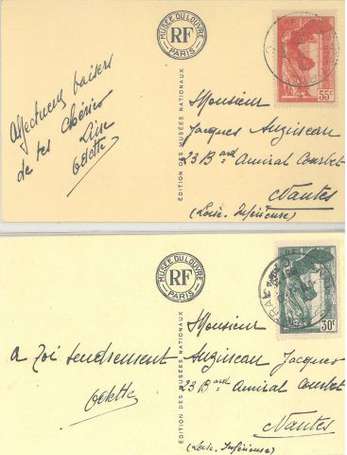 MUSÉE DU LOUVRE
RF
PARIS
55c
Affectueux baisers
de tes Chéries
Odette
ÉDITION DES MUSÉES NATIONAUX
Monsieur
Jacques Augizeau
23 Bard Amiral Courbet
Nantes
(Loire-Inférieure)
MUSÉE DU LOUVRE
RF
PARIS
30c
A Toi tendrement
Odette
ÉDITION DES MUSÉES NATIONAUX
Monsieur
Augizeau Jacques
23 Bard Amiral Courbet
Nantes
(Loire-Inférieure)